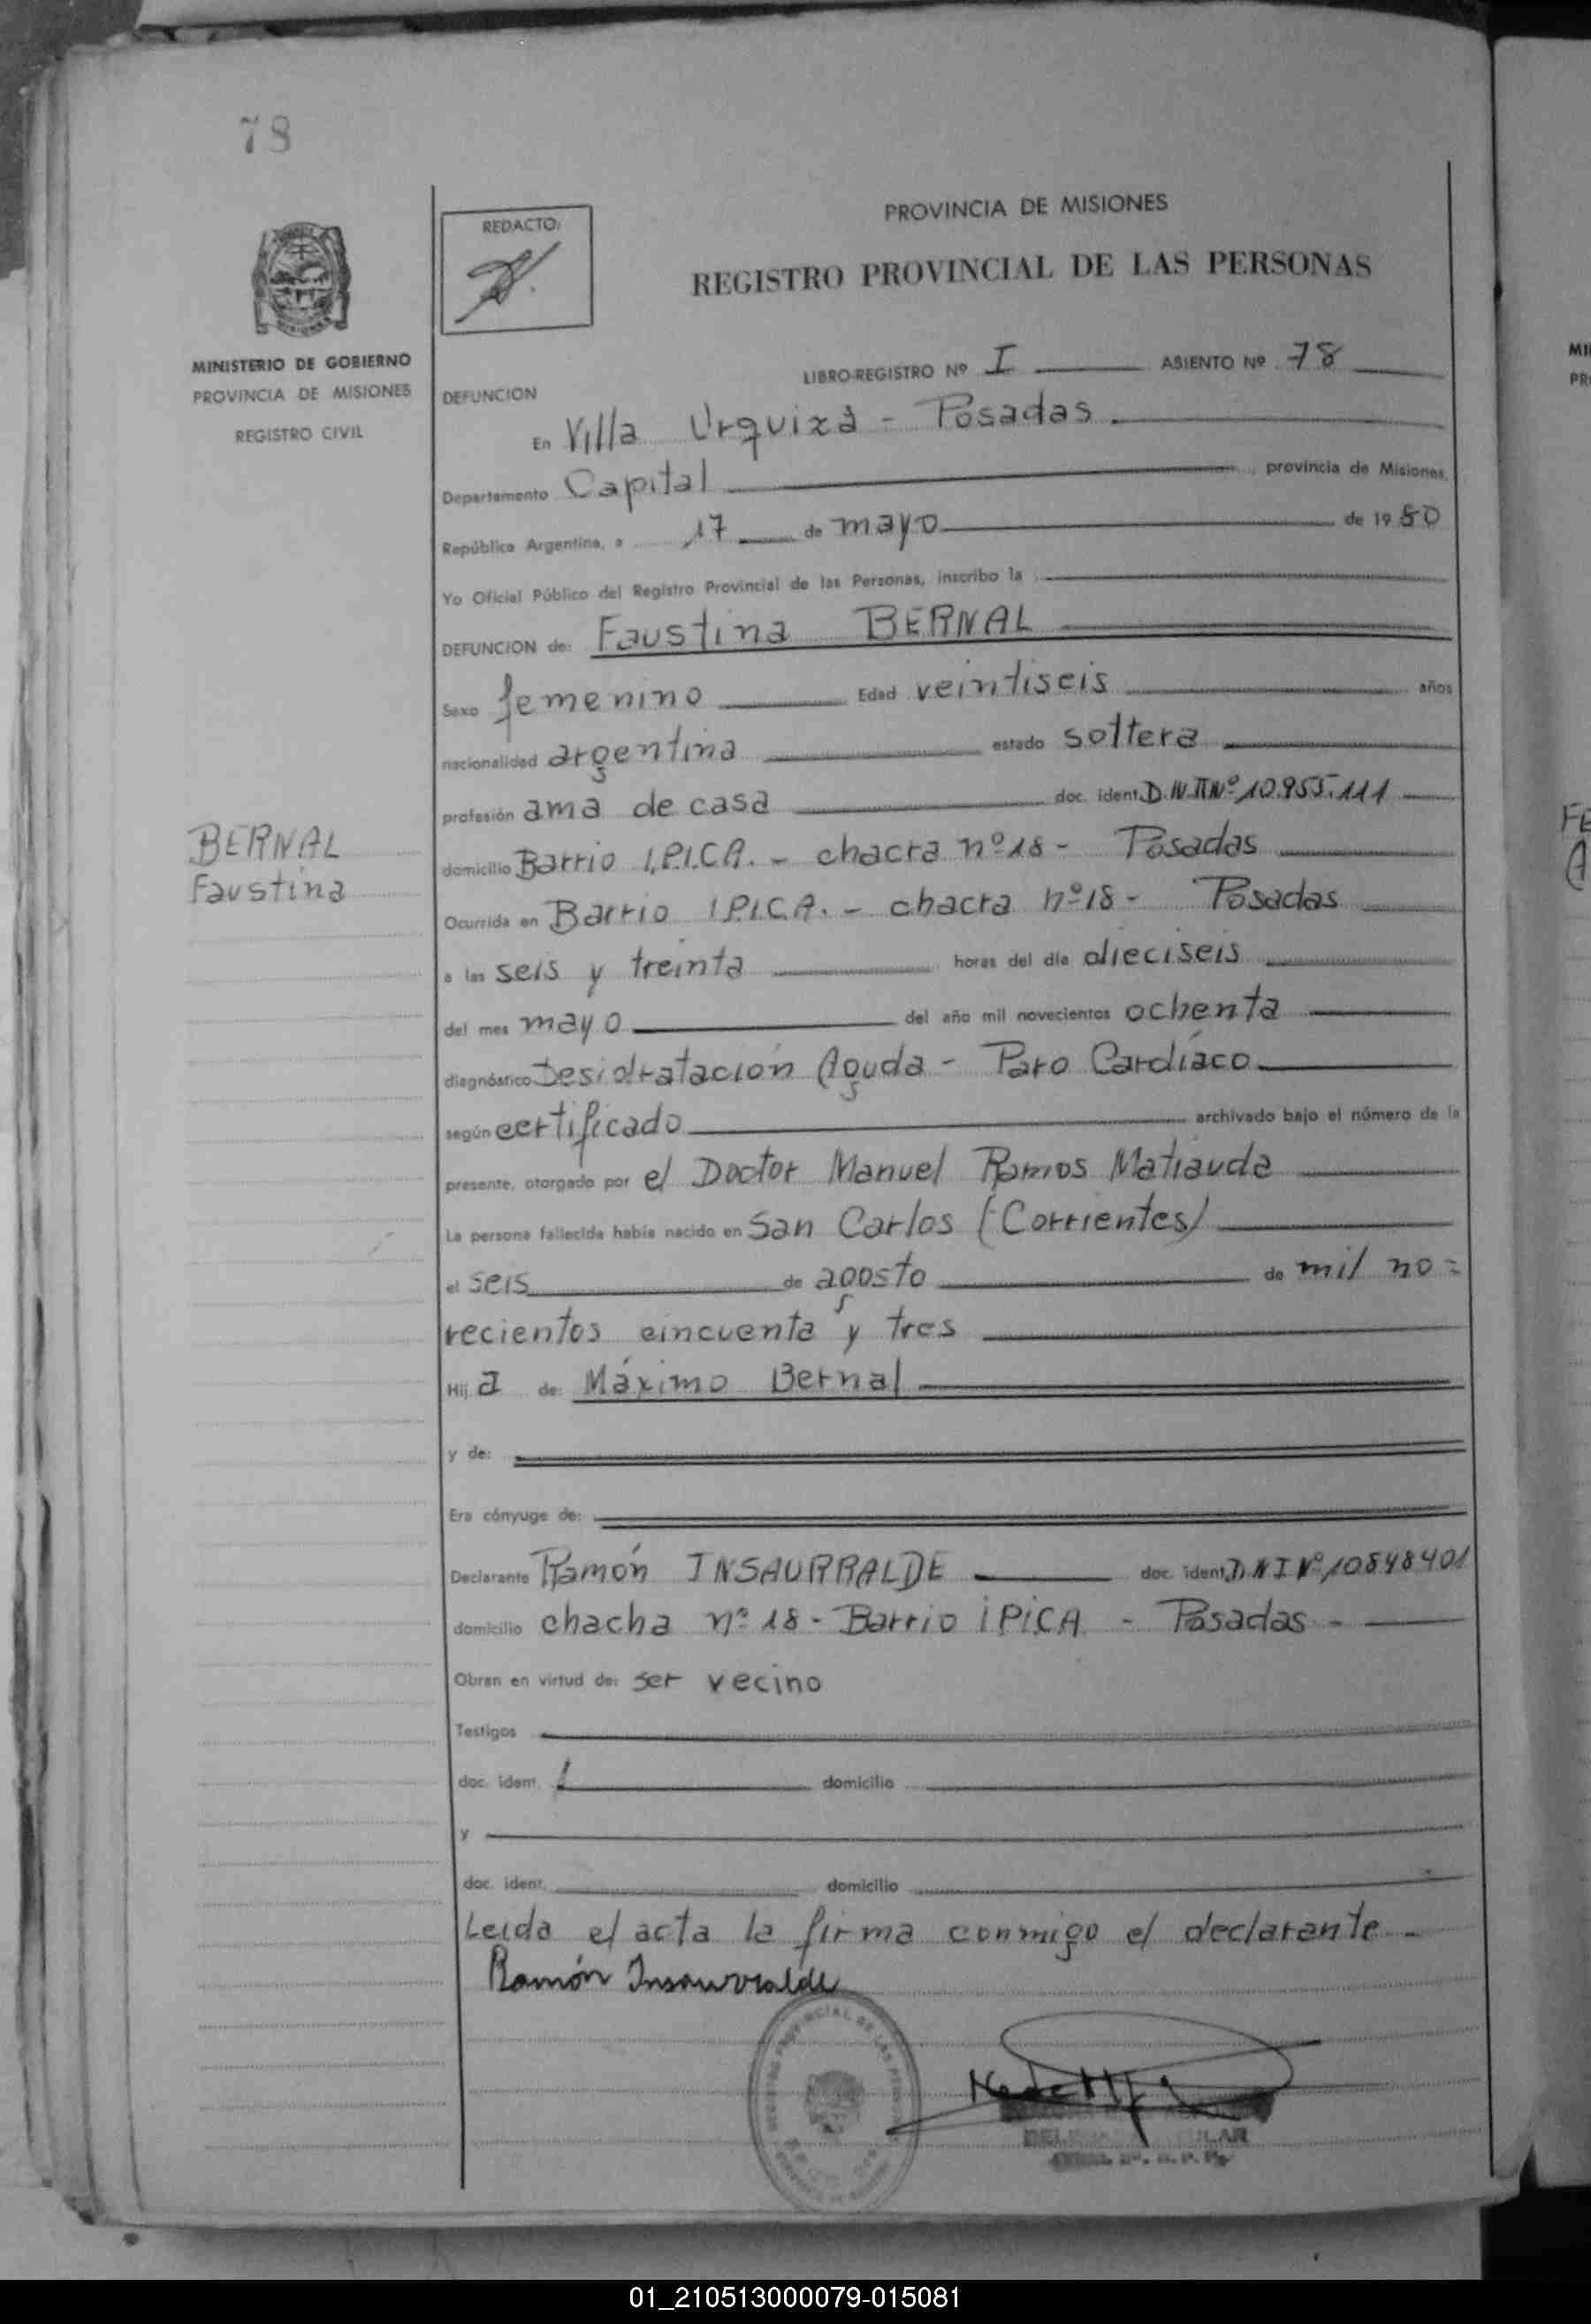 78
PROVINCIA DE MISIONES
REDACTO:
REGISTRO PROVINCIAL DE LAS PERSONAS
MINISTERIO DE GOBIERNO
PROVINCIA DE MISIONES
REGISTRO CIVIL
LIBRO-REGISTRO Nº I ASIENTO Nº 78
DEFUNCION
En Villa Urquiza - Posadas
Departamento Capital provincia de Misiones,
República Argentina, a 17 de mayo de 1980
Yo Oficial Público del Registro Provincial de las Personas, inscribo la
DEFUNCION de: Faustina BERNAL
Sexo femenino Edad veintiseis años
nacionalidad argentina estado soltera
profesión ama de casa doc. ident. D.N.I Nº 10.955.111
BERNAL
Faustina
domicilio Barrio I.P.I.C.A. - chacra nº 18 - Posadas
Ocurrida en Barrio I.P.I.C.A. - chacra nº 18 - Posadas
a las seis y treinta horas del día dieciseis
del mes mayo del año mil novecientos ochenta
diagnóstico Desidratación Aguda - Paro Cardíaco
según certificado archivado bajo el número de la
presente, otorgado por el Doctor Manuel Ramos Matiauda
La persona fallecida había nacido en San Carlos (Corrientes)
el seis de agosto de mil no=
vecientos cincuenta y tres
Hij a de: Máximo Bernal
y de:
Era cónyuge de:
Declarante Ramón INSAURRALDE doc. ident. D.N.I Nº 10848401
domicilio chacha nº 18 - Barrio IPICA - Posadas -
Obran en virtud de: ser vecino
Testigos
doc. ident. domicilio
y
doc. ident. domicilio
Leida el acta la firma conmigo el declarante -
Ramón Insaurralde
01_210513000079-015081